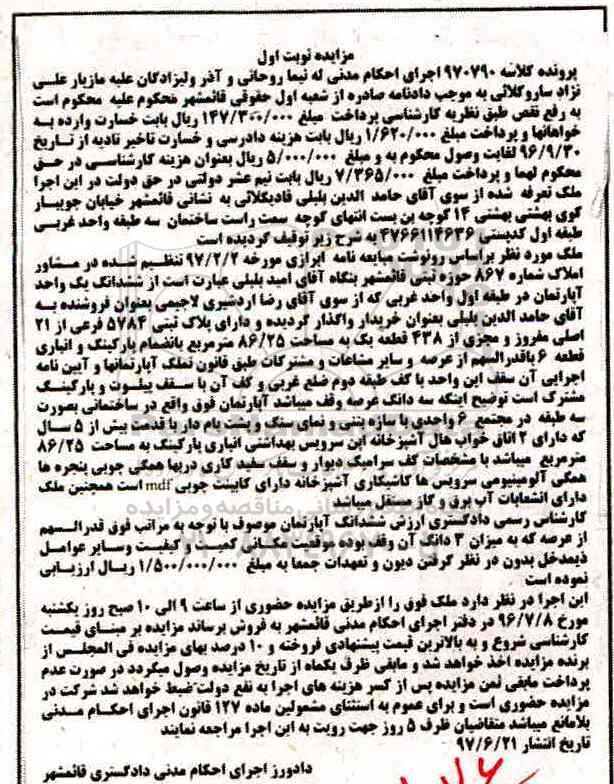 مزایده نوبت اول
پرونده کلاسه ۹۷۰۷۹۰ اجرای احکام مدنی له نیما روحانی و آذر ولیزادگان علیه مازیار علی
نژاد ساروکلائی به موجب دادنامه صادره از شعبه اول حقوقی قائمشهر محکوم علیه محکوم است
به رفع نقص طبق نظریه کارشناسی پرداخت مبلغ ۱۴۷/۳۰۰/۰۰۰ ریال بابت خسارت وارده به
خواهانها و پرداخت مبلغ ۱/۶۲۰/۰۰۰ ریال بابت هزینه دادرسی و خسارت تاخیر تادیه از تاریخ
۹۶/۹/۳۰ لغایت وصول محکوم به و مبلغ ۵/۰۰۰/۰۰۰ ریال بعنوان هزینه کارشناسی در حق
محکوم لهما و پرداخت مبلغ ۷/۳۶۵/۰۰۰ ریال بابت نیم عشر دولتی در حق دولت در این اجرا
ملک تعرفه شده از سوی آقای حامد الدین بلبلی قادیکلائی به نشانی قائمشهر خیابان جویبار
کوی بهشتی بهشتی ۱۴ کوچه بن بست انتهای کوچه سمت راست ساختمان سه طبقه واحد غربی
طبقه اول کدپستی ۴۷۶۶۱۱۴۶۳۶ به شرح زیر توقیف گردیده است
ملک مورد نظر براساس رونوشت مبایعه نامه ابرازی مورخه ۹۷/۲/۲ تنظیم شده در مشاور
املاک شماره ۸۶۷ حوزه ثبتی قائمشهر بنگاه آقای امید بلبلی عبارت است از ششدانگ یک واحد
آپارتمان در طبقه اول واحد غربی که از سوی آقای رضا اردشیری لاجیمی بعنوان فروشنده به
آقای حامد الدین بلبلی بعنوان خریدار واگذار گردیده و دارای پلاک ثبتی ۵۷۸۴ فرعی از ۲۱
اصلی مفروز و مجزی از ۴۳۸ قطعه یک به مساحت ۸۶/۲۵ مترمربع بانضمام پارکینگ و انباری
قطعه ۶ باقدرالسهم از عرصه و سایر مشاعات و مشترکات طبق قانون تملک آپارتمانها و آیین نامه
اجرایی آن سقف این واحد با کف طبقه دوم ضلع غربی و کف آن با سقف پیلوت و پارکینگ
مشترک است توضیح اینکه سه دانگ عرصه وقف میباشد آپارتمان فوق واقع در ساختمانی بصورت
سه طبقه در مجتمع ۶ واحدی با سازه بتنی و نمای سنگ و پشت بام دار با قدمت بیش از ۵ سال
که دارای ۲ اتاق خواب هال آشپزخانه اپن سرویس بهداشتی انباری پارکینگ به مساحت ۸۶/۲۵
مترمربع میباشد با مشخصات کف سرامیک دیوار و سقف سفید کاری دربها همگی چوبی پنجره ها
همگی آلومینیومی سرویس ها کاشیکاری آشپزخانه دارای کابینت چوبی mdf است همچنین ملک
دارای انشعابات آب برق و گاز مستقل میباشد
کارشناس رسمی دادگستری ارزش ششدانگ آپارتمان موصوف با توجه به مراتب فوق قدرالسهم
از عرصه که به میزان ۳ دانگ آن وقف بوده موقعیت مکانی کمیت و کیفیت وسایر عوامل
ذیمدخل بدون در نظر گرفتن دیون و تعهدات جمعا به مبلغ ۱/۵۰۰/۰۰۰/۰۰۰ ریال ارزیابی
نموده است
این اجرا در نظر دارد ملک فوق را ازطریق مزایده حضوری از ساعت ۹ الی ۱۰ صبح روز یکشنبه
مورخ ۹۶/۷/۸ در دفتر اجرای احکام مدنی قائمشهر به فروش برساند مزایده بر مبنای قیمت
کارشناسی شروع و به بالاترین قیمت پیشنهادی فروخته و ۱۰ درصد بهای مزایده فی المجلس از
برنده مزایده اخذ خواهد شد و مابقی ظرف یکماه از تاریخ مزایده وصول میگردد در صورت عدم
پرداخت مابقی ثمن مزایده پس از کسر هزینه های اجرا به نفع دولت ضبط خواهد شد شرکت در
مزایده حضوری است و برای عموم به استثنای مشمولین ماده ۱۲۷ قانون اجرای احکام مدنی
بلامانع میباشد متقاضیان ظرف ۵ روز جهت رویت به این اجرا مراجعه نمایند
تاریخ انتشار ۹۷/۶/۲۱
دادورز اجرای احکام مدنی دادگستری قائمشهر